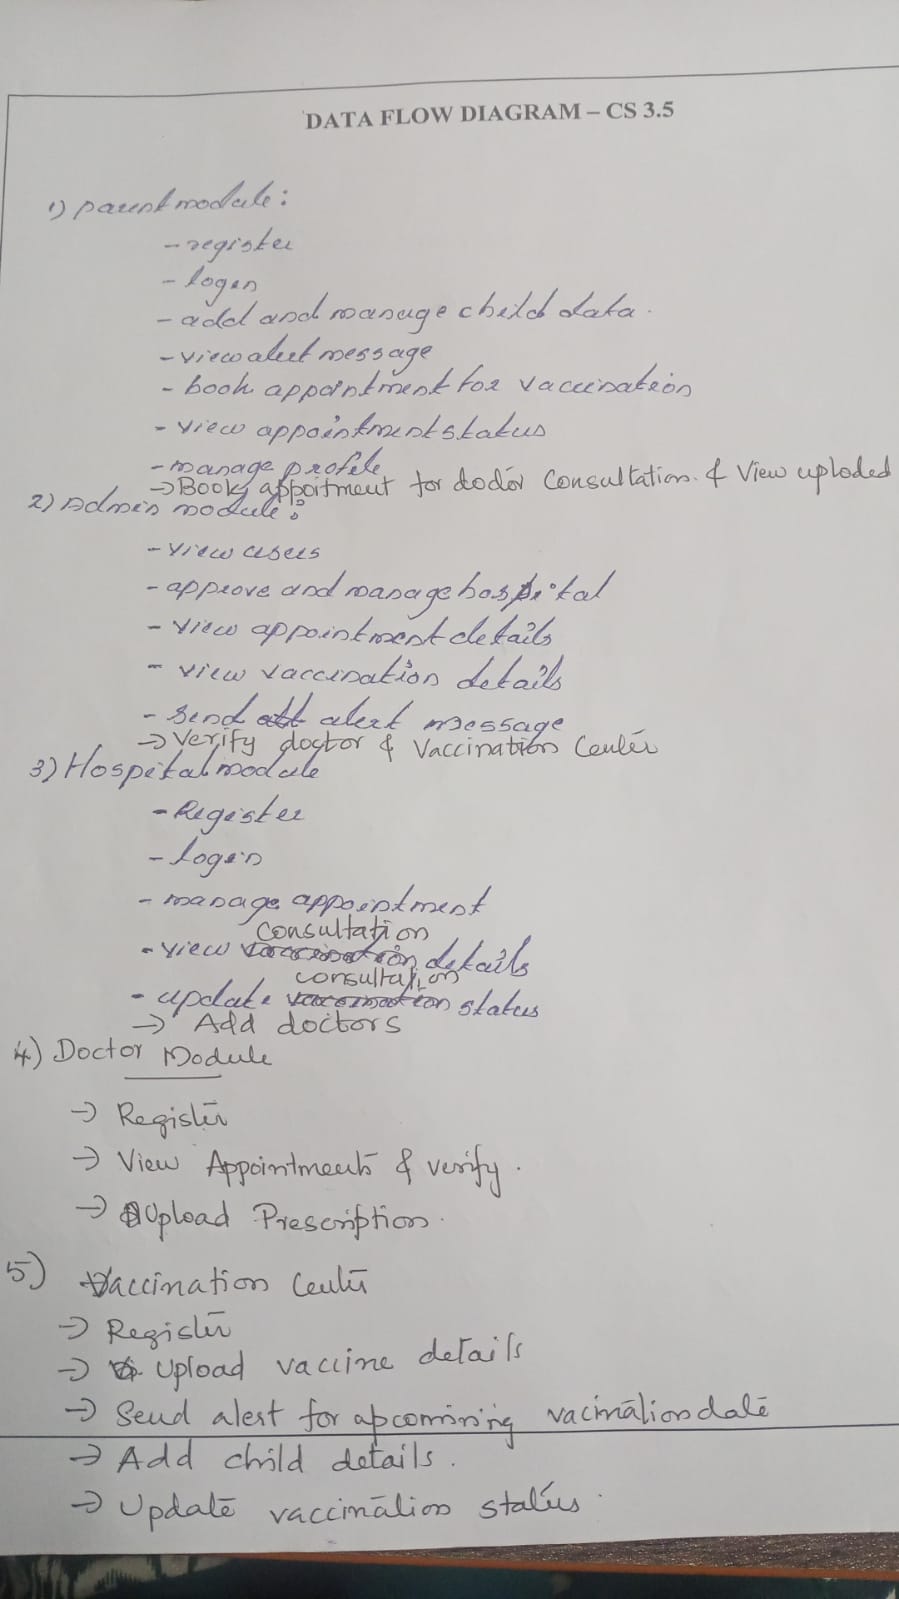 DATA FLOW DIAGRAM – CS 3.5
1) parent module:
- register
- login
- add and manage child data.
- view alert message
- book appointment for vaccination
- view appointment status
- manage profile
→ Book appoitment for doctor Consultation. & View uploded
2) Admin module:
- view users
- approve and manage hospital
- view appointment details
- view vaccination details
- send alert message
→ Verify doctor & Vaccination Center
3) Hospital module
- Register
- login
- manage appointment
consultation
- view vaccination details
consultation
- update vaccination status
→ Add doctors
4) Doctor Module
→ Register
→ View Appointments & verify.
→ Upload Prescription.
5) Vaccination Center
→ Register
→ Upload vaccine details
→ Send alert for upcomining vacination date
→ Add child details.
→ Update vaccination status.